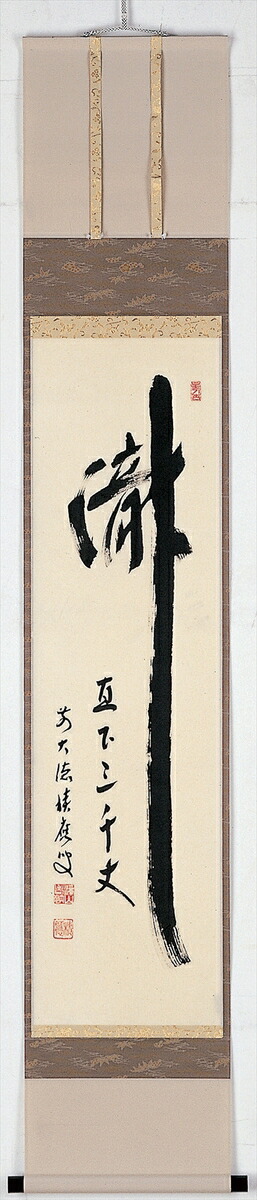 瀧
直下三千丈
前大徳積應叟